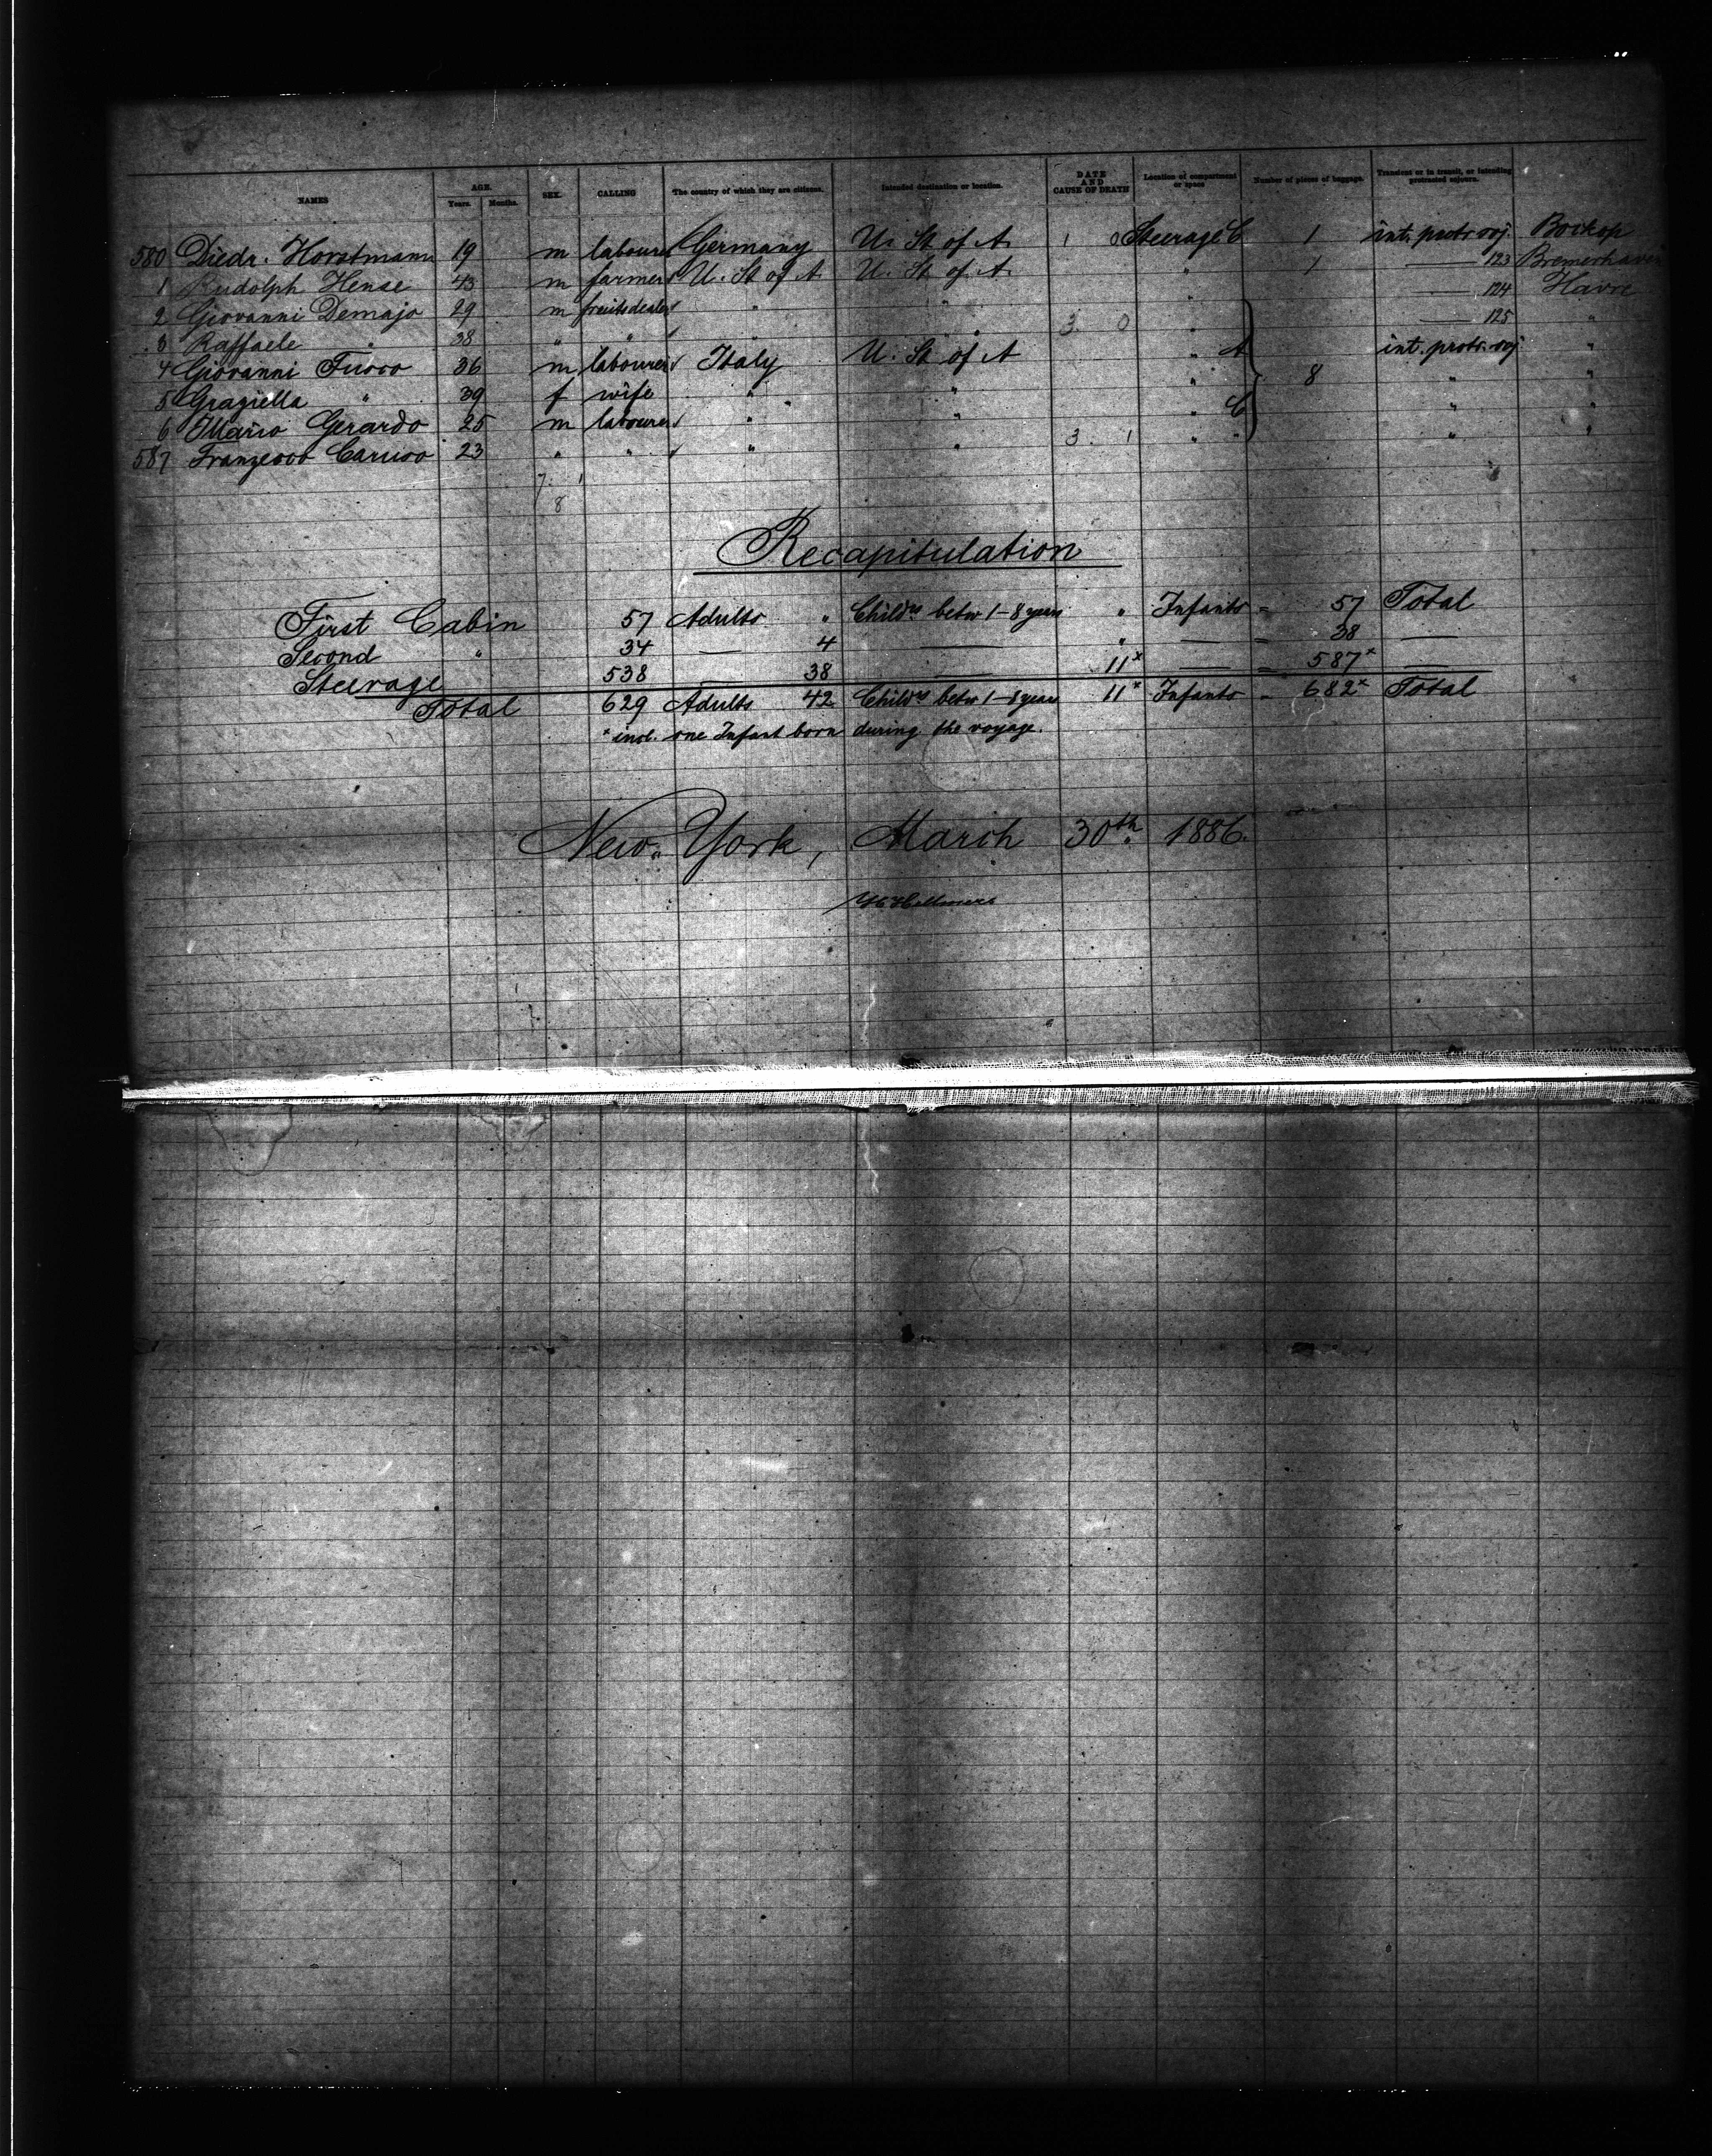 NAMES AGE. Years. Months. SEX. CALLING The country of which they are citizens. Intended destination or location. DATE AND CAUSE OF DEATH Location of compartment or space Number of pieces of luggage. Transient or in transit, or intending protracted sojourn.
580 Diedr. Horstmann 19 m labourer Germany U. St. of A. 1 0 Steerage C 1 int. protr. soj. Bockop
1 Rudolph Hense 43 m farmer U. St. of A U. St. of A. " 1 — 123 Bremerhaven
2 Giovanni Demajo 29 m fruitsdealer " " " — 124 Havre
3 Raffaele " 38 " " " " 3. 0 " — 125 "
4 Giovanni Fusco 36 m labourer Italy U. St. of A " A int. protr. soj "
5 Graziella " 39 f wife " " " 8 " "
6 Mario Gerardo 25 m labourer " " " C " "
587 Franzesco Caruso 23 " " " " 3. 1 " " " "
7. 1
8
Recapitulation
First Cabin 57 Adults " Childrs betw 1-8 years " Infants = 57 Total
Second " 34 — 4 — " — = 38 —
Steerage 538 — 38 — 11* — = 587* —
Total 629 Adults 42 Childrs betw 1-8 years 11* Infants = 682* Total
* incl. one Infant born during the voyage.
New-York, March 30th. 1886.